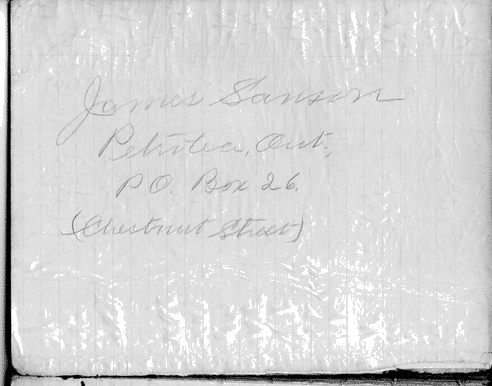 James Sanson
Petrolea, Ont.,
P.O. Box 26.
(Chestnut Street)